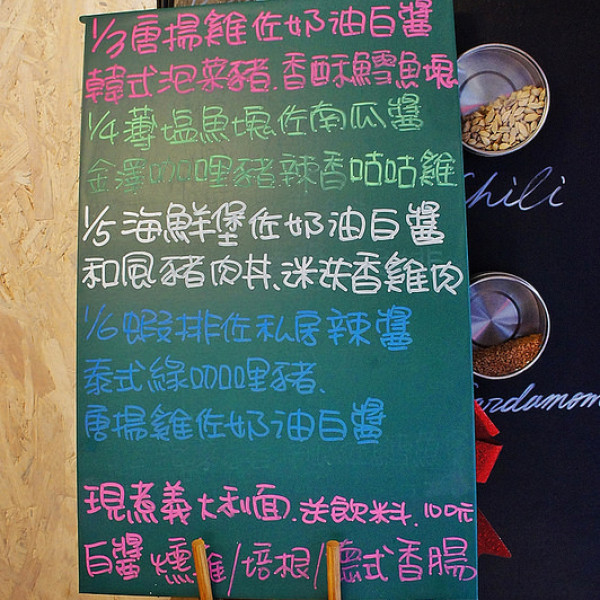 1/3唐揚雞佐奶油白醬
韓式泡菜豬.香酥鱈魚塊
1/4薄塩魚塊佐南瓜醬
金澤咖哩豬辣香咕咕雞
1/5海鮮堡佐奶油白醬
和風豬肉丼、迷迭香雞肉
1/6蝦排佐私房辣醬
泰式綠咖哩豬、
唐揚雞佐奶油白醬
現煮義大利面.送飲料.100元
白醬燻雞/培根/德式香腸
Chili
Cardamom